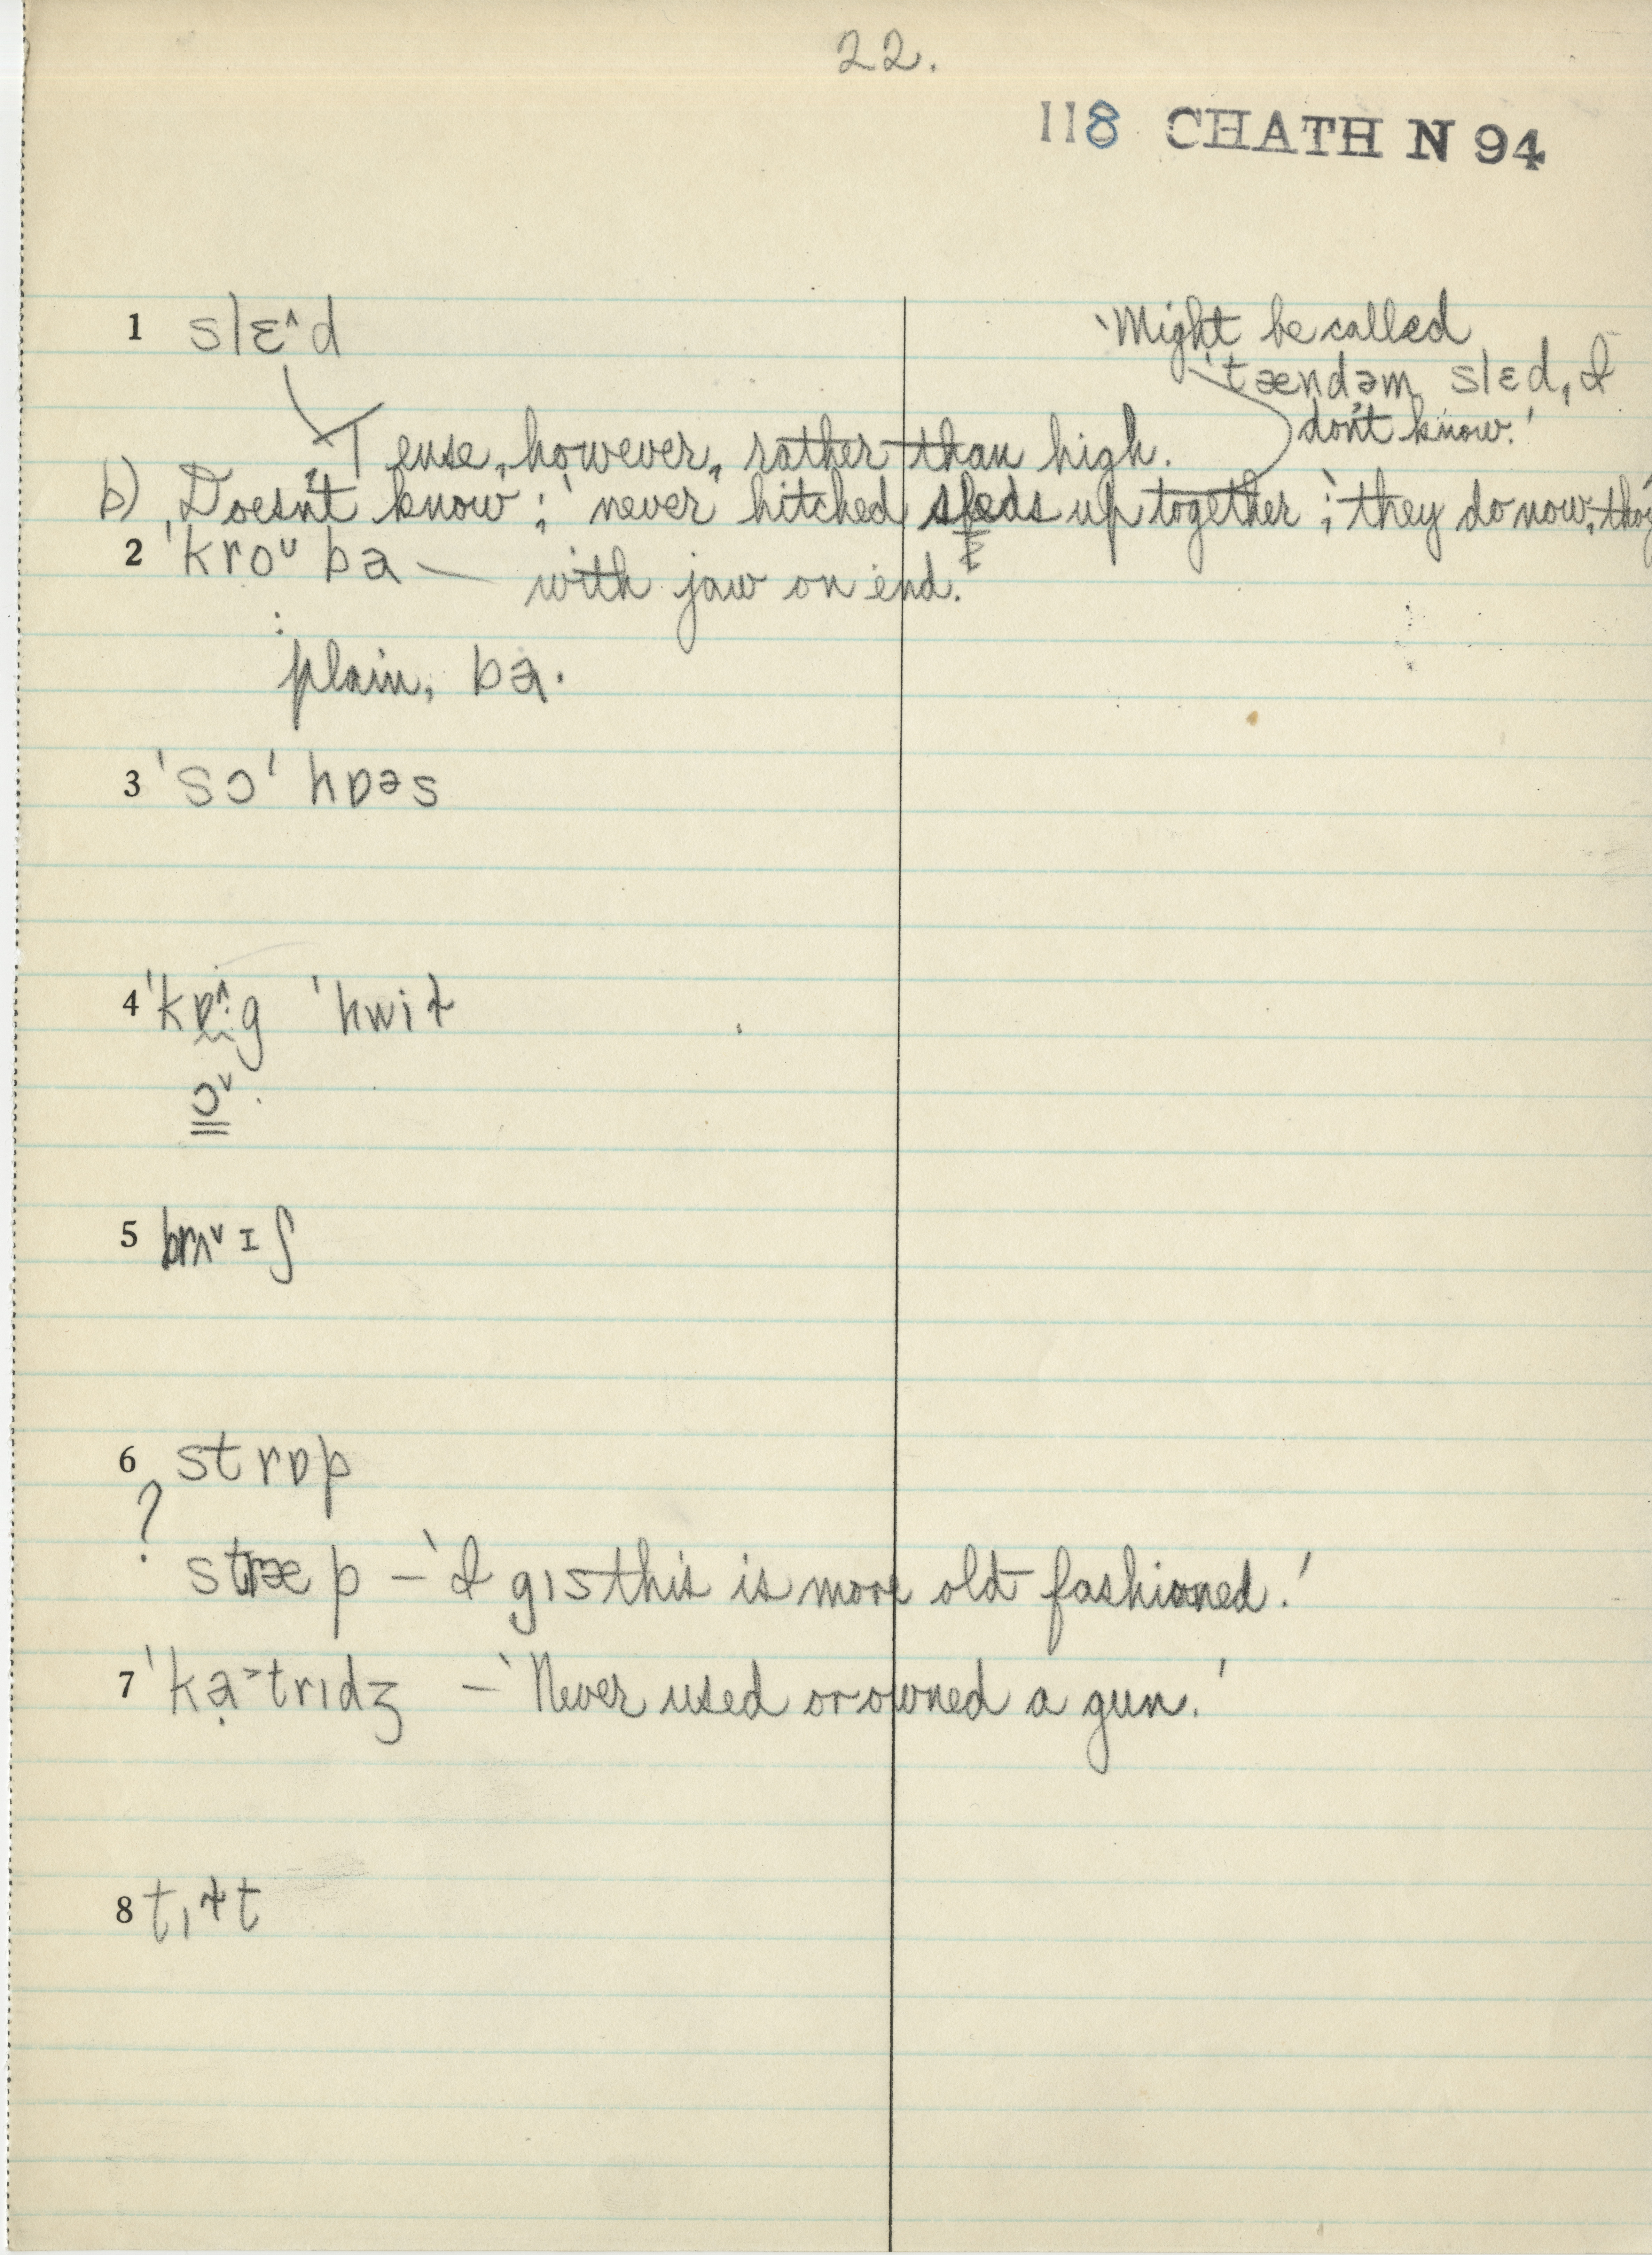 22.
118 CHATH N 94
1 slɛ^d
'Might be called
'tændəm slɛd, I
don't know.'
Tense, however, rather than high.
b) Doesn't know; 'never hitched sleds up together; they do now, tho'
2 'kroᴜ ba — with jaw on end.
plain, ba.
3 'sɔ' hɒəs
4 'kɒ^·g 'hwiɫ
ɔ˅·
5 brʌ˅ɪʃ
6 strɒp
? stræp – 'I gɪs this is more old fashioned.'
7 'kạ˃trɪdʒ – 'Never used or owned a gun.'
8 tɪɫt